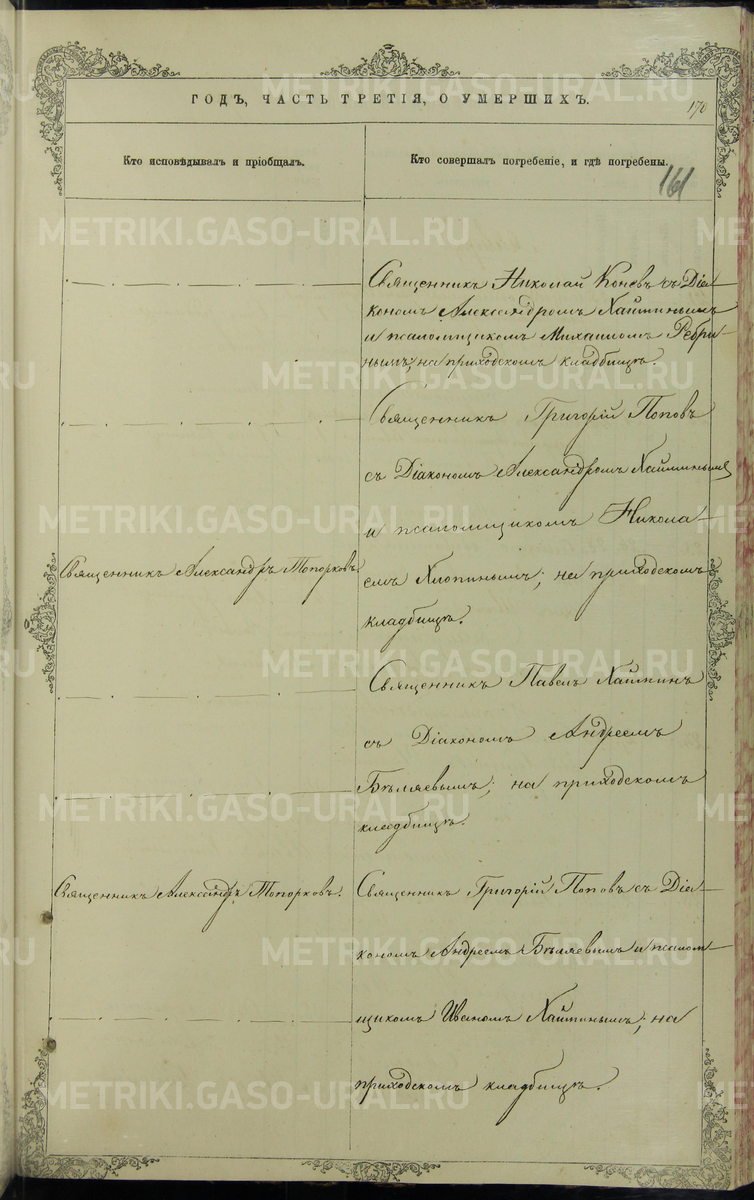 ГОДЪ, ЧАСТЬ ТРЕТІЯ, О УМЕРШИХЪ.
170
Кто исповѣдывалъ и пріобщалъ.
Кто совершалъ погребеніе, и гдѣ погребены.
161
Священникъ Николай Коневъ съ Діа-
кономъ Александромъ Хайминымъ
и псаломщикомъ Михаиломъ Ребри-
нымъ; на приходскомъ кладбищѣ.
Священникъ Григорій Поповъ
съ Діакономъ Александромъ Хайминымъ
и псаломщикомъ Никола-
Священникъ Александръ Топорковъ.
емъ Хлопинымъ; на приходскомъ
кладбищѣ.
Священникъ Павелъ Хайминъ
съ Діакономъ Андреемъ
Бѣляевымъ; на приходскомъ
кладбищѣ.
Священникъ Александръ Топорковъ.
Священникъ Григорій Поповъ съ Діа-
кономъ Андреемъ Бѣляевымъ и псалом-
щикомъ Иваномъ Хайминымъ; на
приходскомъ кладбищѣ.
METRIKI.GASO-URAL.RU